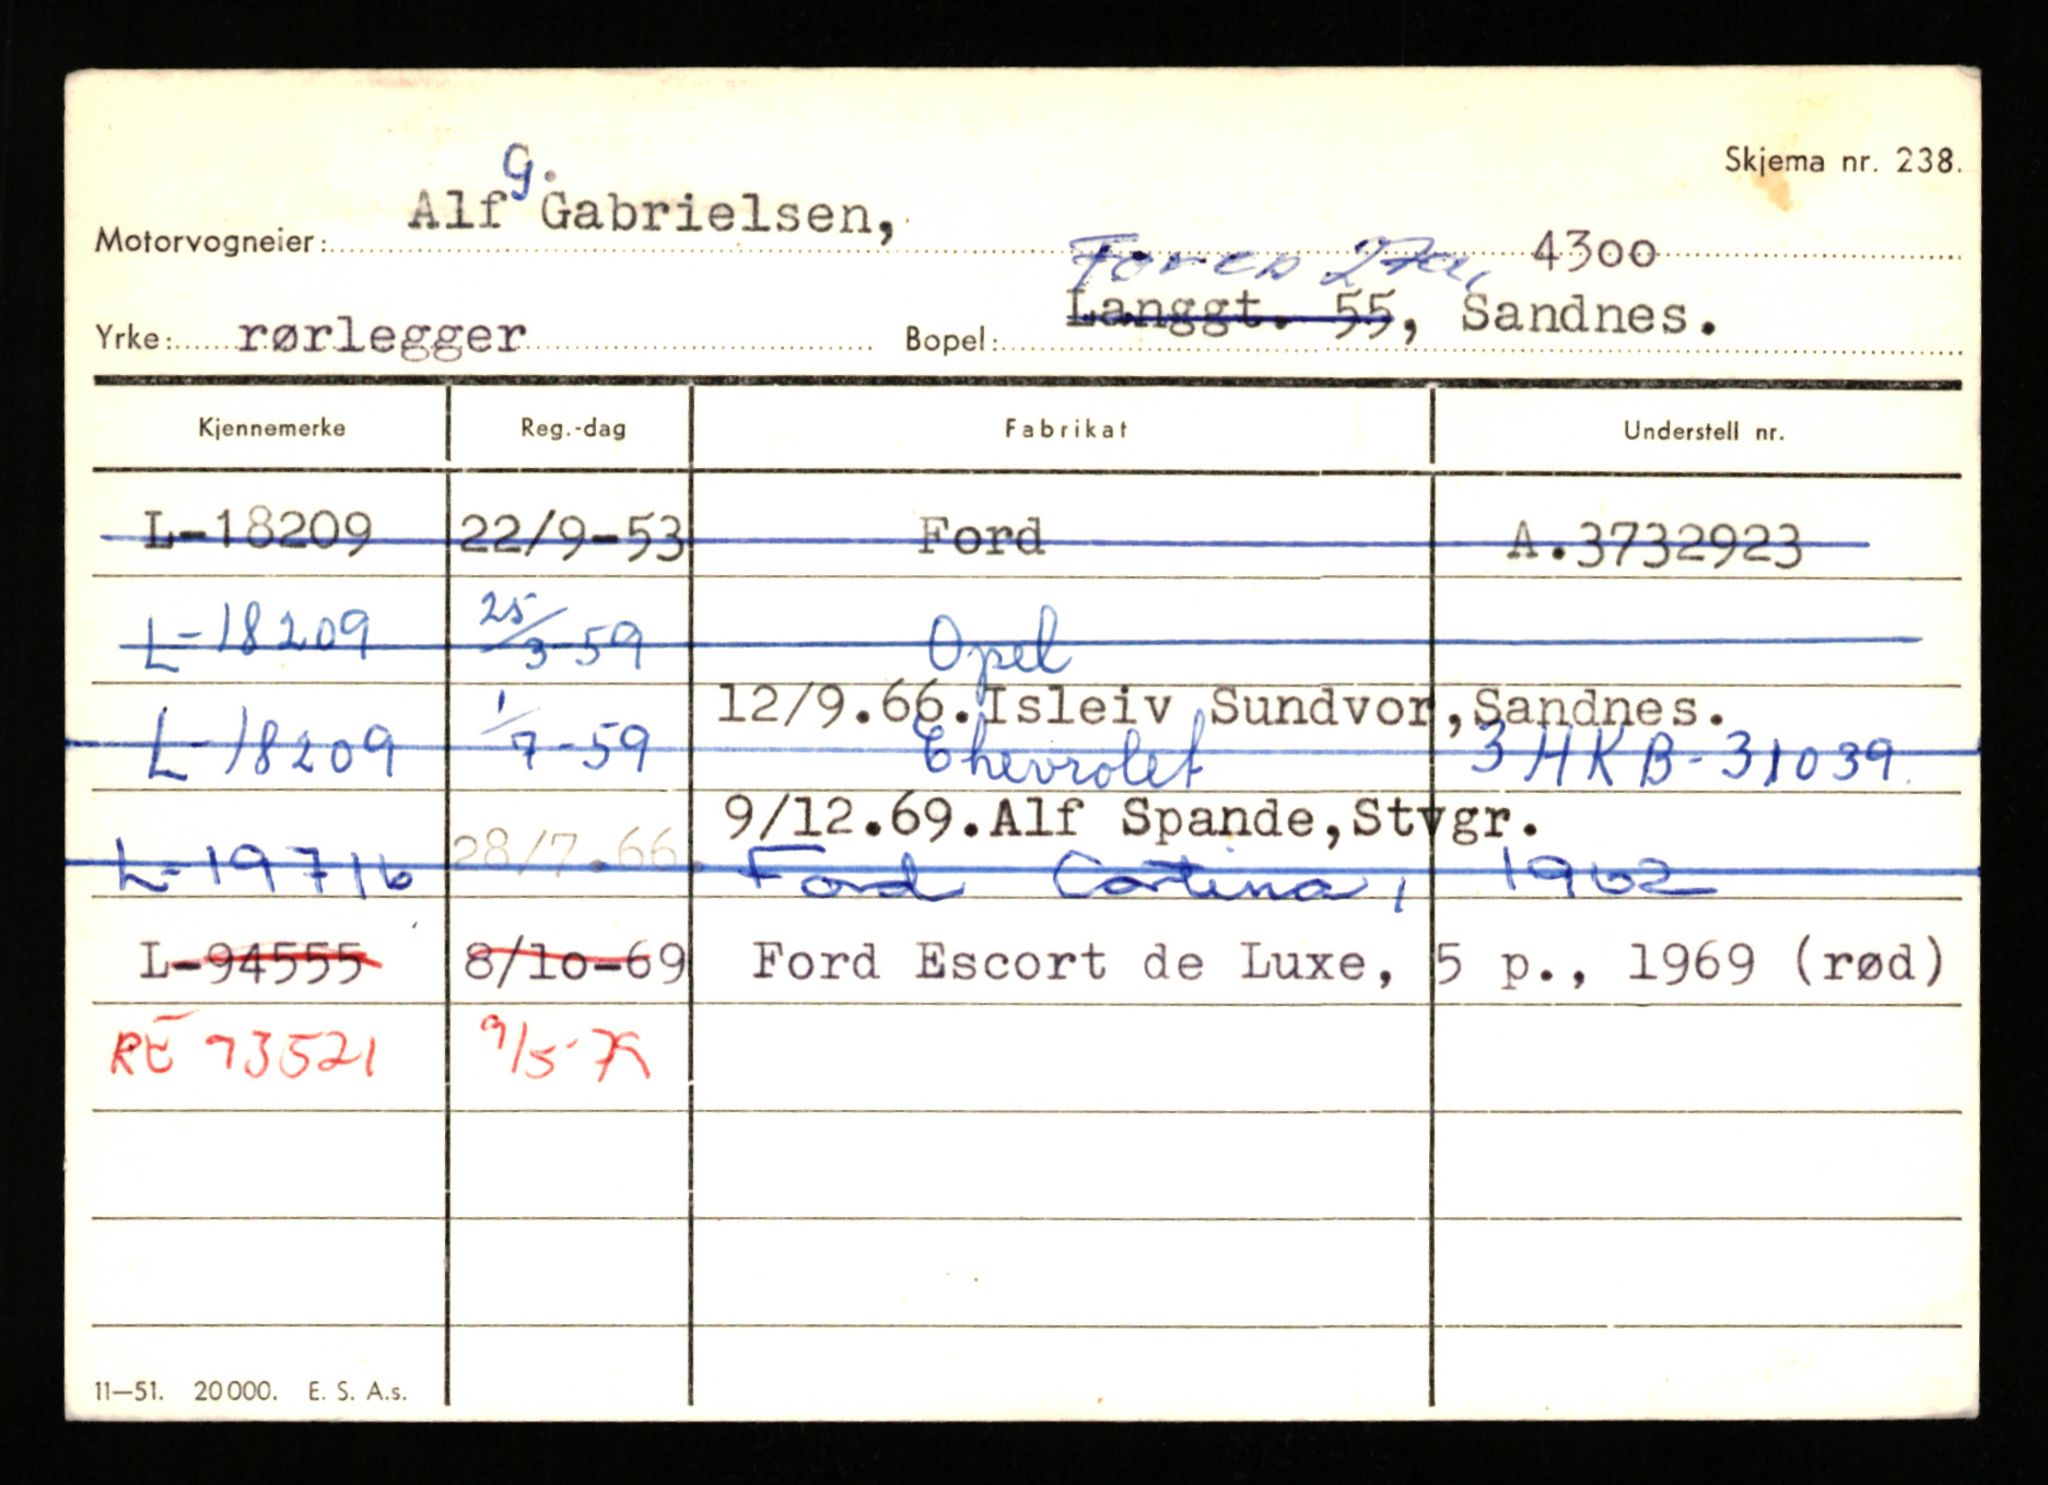 Skjema nr. 238.
G.
Motorvogneier: Alf Gabrielsen,
4300
Yrke: rørlegger Bopel: Langgt. 55, Sandnes.
Kjennemerke Reg.-dag Fabrikat Understell nr.
L-18209 22/9-53 Ford A.3732923
L-18209 25/3-59 Opel
12/9.66.Isleiv Sundvor,Sandnes.
L-18209 1/7-59 Chevrolet 3 HKB-31039
9/12.69.Alf Spande,Stvgr.
L-19716 28/7.66. Ford Cortina, 1962
L-94555 8/10-69 Ford Escort de Luxe, 5 p., 1969 (rød)
RE 73521 9/5-79
11—51. 20000. E. S. A.s.